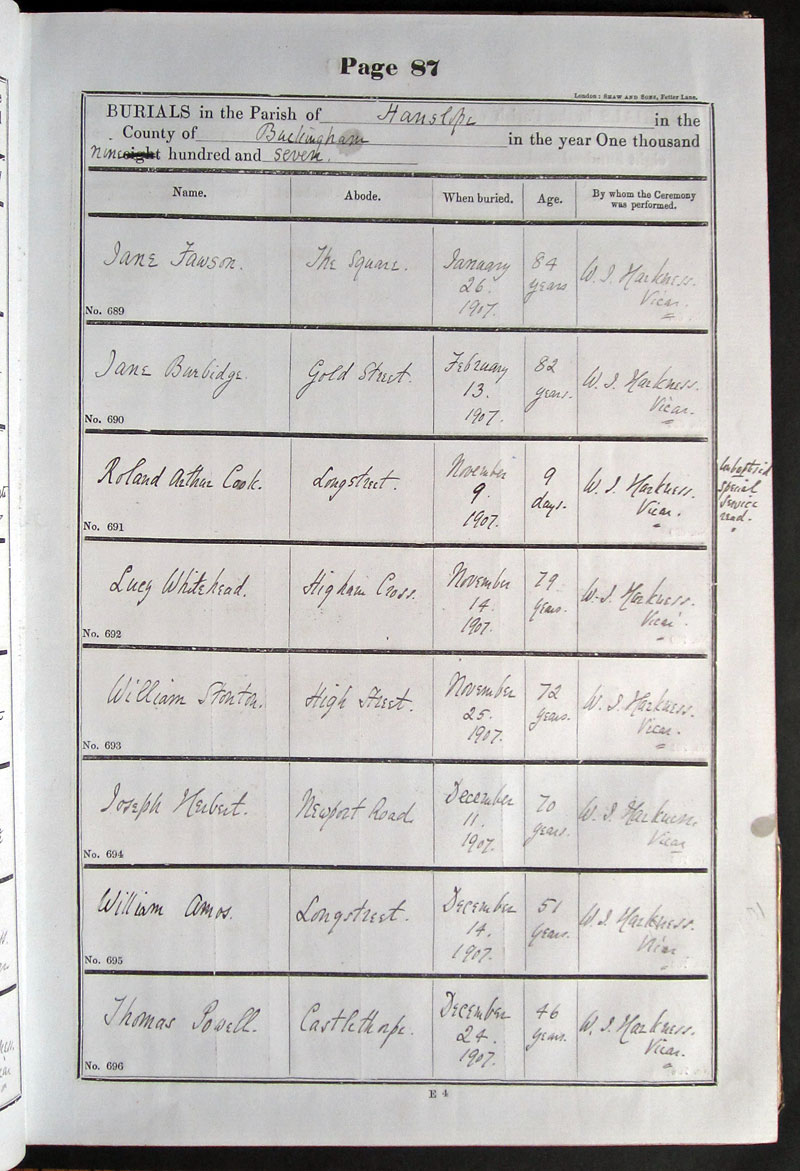 Page 87
London: SHAW AND SONS, Fetter Lane.
BURIALS in the Parish of Hanslope in the
County of Buckingham in the year One thousand
nine eight hundred and seven.
Name. Abode. When buried. Age. By whom the Ceremony was performed.
Jane Fawson. The Square. January 84 W. J. Harkness.
26. years Vicar.
1907.
No. 689
Jane Burbidge. Gold Street. February 82 W. J. Harkness.
13. years. Vicar.
1907.
No. 690
Roland Arthur Cook. Longstreet. November 9 W. J. Harkness.
9. days. Vicar.
1907.
No. 691
Unbaptised
special
service
read.
Lucy Whitehead. Higham Cross. November 79 W. J. Harkness.
14 years. Vicar.
1907.
No. 692
William Stonton. High Street. November 72 W. J. Harkness.
25. years. Vicar.
1907.
No. 693
Joseph Herbert. Newport Road December 70 W. J. Harkness.
11. years. Vicar
1907.
No. 694
William Amos. Longstreet. December 51 W. J. Harkness.
14. years. Vicar.
1907.
No. 695
Thomas Powell. Castlethorpe. December 46 W. J. Harkness.
24. years. Vicar.
1907.
No. 696
E 4